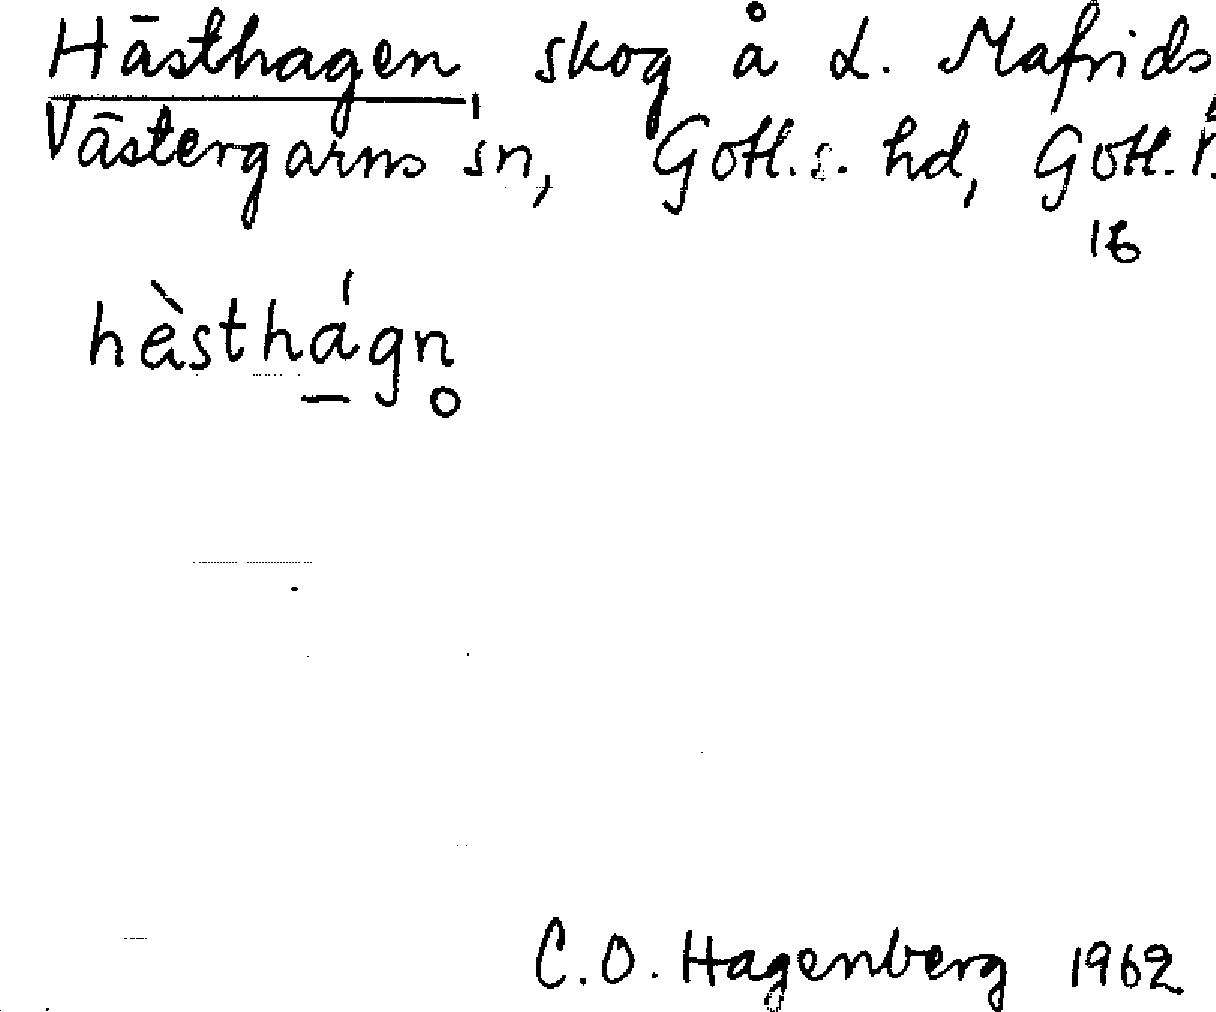 Hästhagen, skog å L. Mafrids,
Västergarns sn, Gotl. s. hd, Gotl. l.
16
hèsthá̱gn̥
C. O. Hagenberg 1962